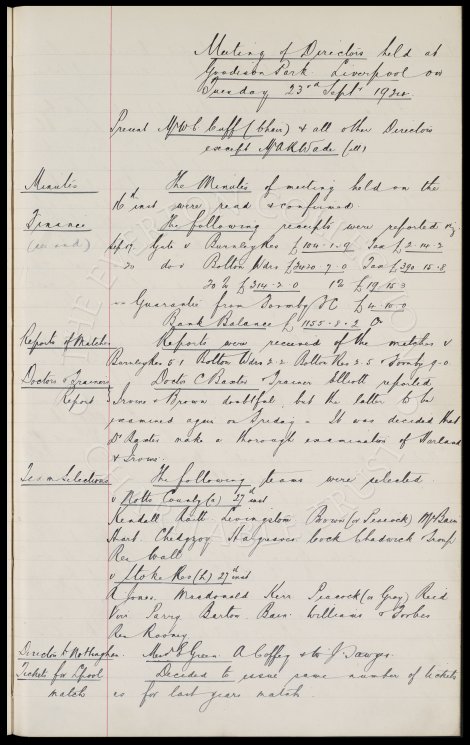 Meeting of Directors held at
Goodison Park. Liverpool on
Tuesday 23rd Sept. 1924.
Present Mr W C Cuff (Chair) & all other Directors
except Mr A R Wade (ill)
Minutes The Minutes of meeting held on the
16th inst were read & confirmed.
Finance The following receipts were reported viz
Sep 17 Gate v Burnley Res £104.1.9 Tax £2.14.2
" 20 do v Bolton Wdrs £3420.9.0 Tax £390.15.8
20% £314.2.0 1% £19.15.3
" Guarantee from Formby FC £4.10.0
Bank Balance £1155.8.2 Cr
Reports of Matches Reports were received of the matches v
Burnley Res 5.1 Bolton Wdrs 2.2 Bolton Res 2.5 & Formby 9.0
Doctors & Trainers Doctor C Baxter & Trainer Elliott reported
Report Irvine & Brown doubtful, but the latter to be
examined again on Friday. It was decided that
Dr make a thorough examination of Harland
& Irvine.
Team Selections The following teams were selected
v Notts County (a) 27th inst
Kendall Raitt Livingstone Brown (or Peacock) McBain
Hart Chedgzoy Hargreaves Cock Chadwick Troup
Res Wall
v Stoke Res (h) 27th inst
R Jones Macdonald Kerr Peacock (or Gray) Reid
Virr Parry Barton Bain Williams & Forbes
Res Rooney
Director to Nottingham Messrs Green A Coffey & J Sawyer
Tickets for L'pool Decided to issue same number of tickets
match as for last years match.